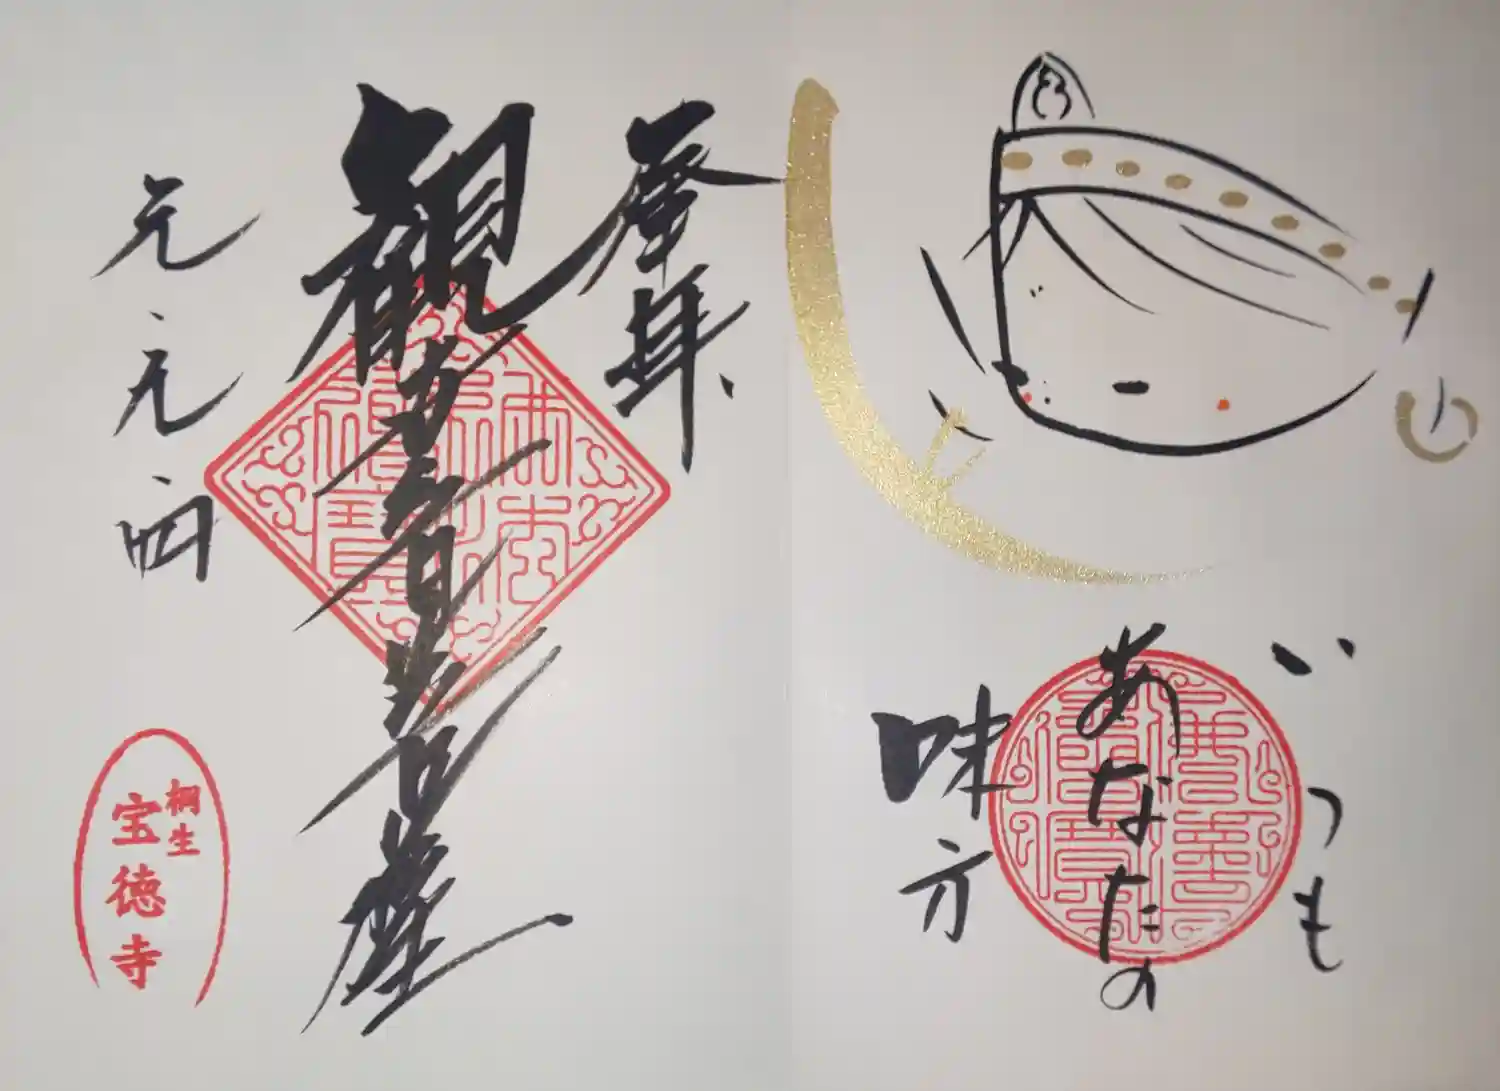 いつも
あなたの
味方
奉拝
観世音菩薩
元、元、四
桐生
宝徳寺